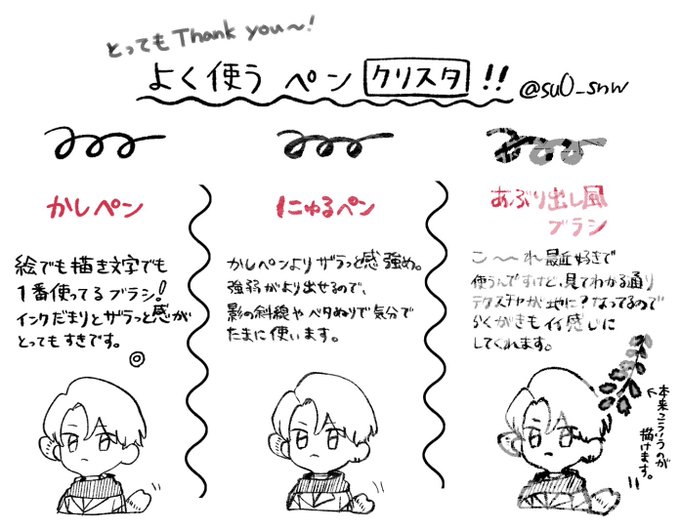 とってもThank you〜!
よく使う ペン クリスタ !!
@su0_snw
かしペン
絵でも描き文字でも
1番使ってるブラシ!
インクだまりとザラっと感が
とってもすきです。
◎
にゅるペン
かしペンよりザラっと感強め。
強弱がより出せるので、
影の斜線やベタぬりで気分で
たまに使います。
あぶり出し風
ブラシ
こ〜〜れ最近好きで
使うんですけど、見てわかる通り
テクスチャが地に?なってるので
らくがきもイイ感じに
してくれます。
本来こういうのが
描けます。